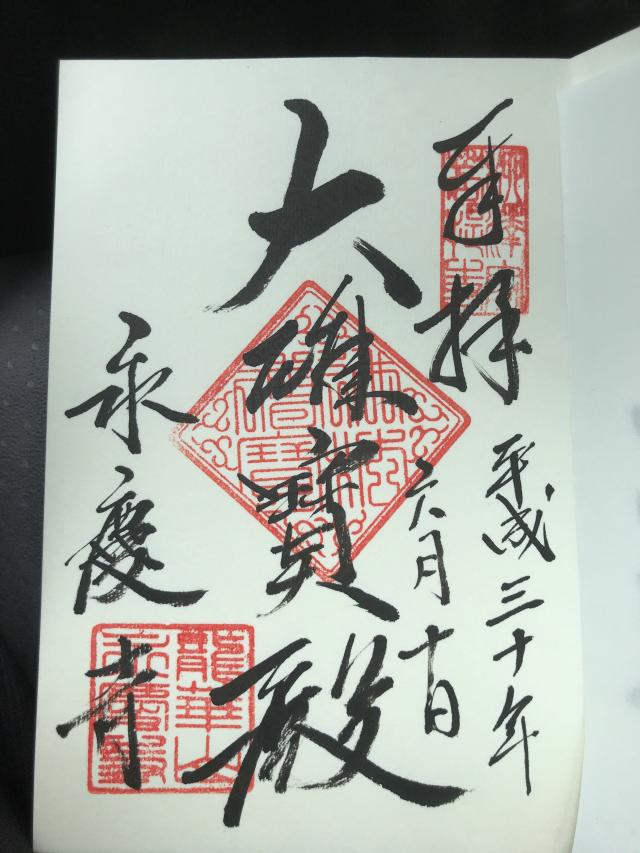 奉拝
平成三十年
六月十日
大雄寶殿
永慶寺
龍華山
永慶寺